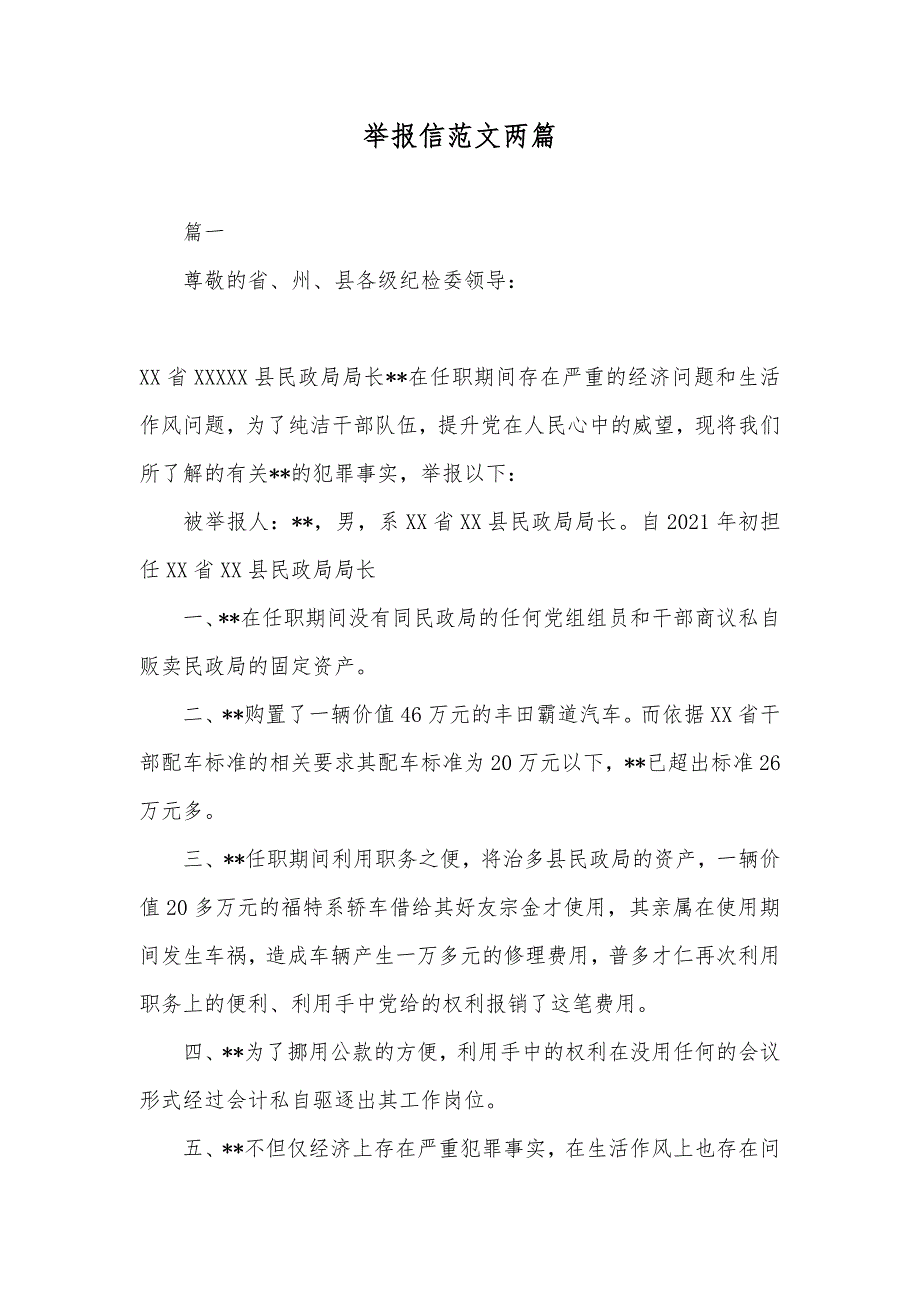 举报信范文两篇
篇一
尊敬的省、州、县各级纪检委领导：
XX 省 XXXXX 县民政局局长**在任职期间存在严重的经济问题和生活
作风问题，为了纯洁干部队伍，提升党在人民心中的威望，现将我们
所了解的有关**的犯罪事实，举报以下：
被举报人：**，男，系 XX 省 XX 县民政局局长。自 2021 年初担
任 XX 省 XX 县民政局局长
一、**在任职期间没有同民政局的任何党组组员和干部商议私自
贩卖民政局的固定资产。
二、**购置了一辆价值 46 万元的丰田霸道汽车。而依据 XX 省干
部配车标准的相关要求其配车标准为 20 万元以下，**已超出标准 26
万元多。
三、**任职期间利用职务之便，将治多县民政局的资产，一辆价
值 20 多万元的福特系轿车借给其好友宗金才使用，其亲属在使用期
间发生车祸，造成车辆产生一万多元的修理费用，普多才仁再次利用
职务上的便利、利用手中党给的权利报销了这笔费用。
四、**为了挪用公款的方便，利用手中的权利在没用任何的会议
形式经过会计私自驱逐出其工作岗位。
五、**不但仅经济上存在严重犯罪事实，在生活作风上也存在问